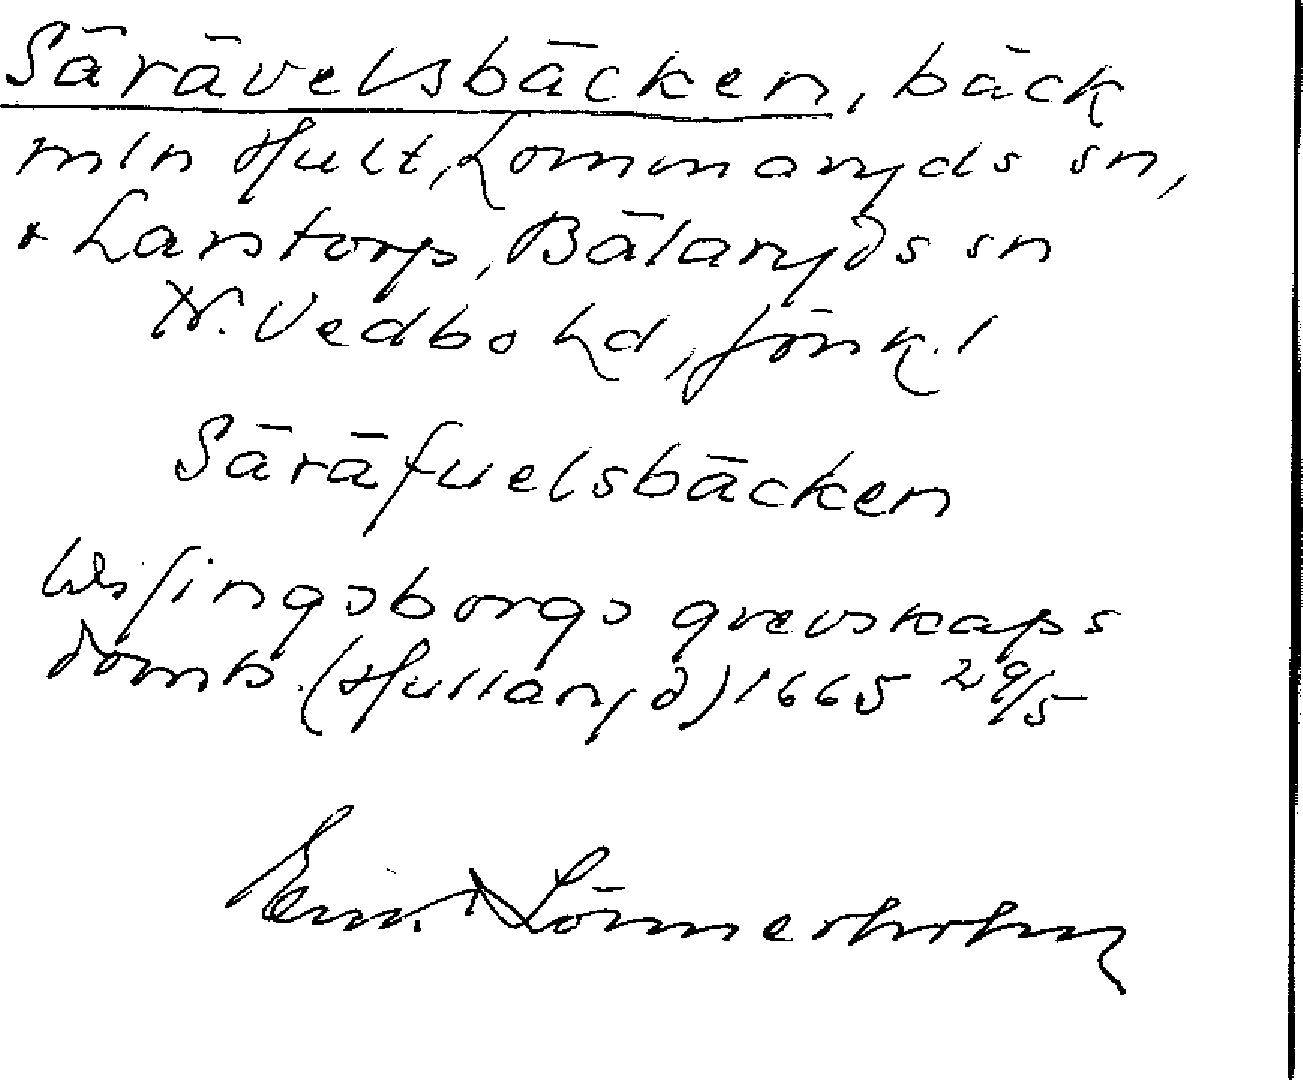 Särävelsbäcken, bäck
mln Hult, Lommaryds sn,
+ Larstorp, Bälaryds sn
N. Vedbo hd, Jönk. l
Säräfuelsbäcken
Wisingsborgs grevskaps
domb. (Hullaryd) 1665 29/5
Lönnerholm